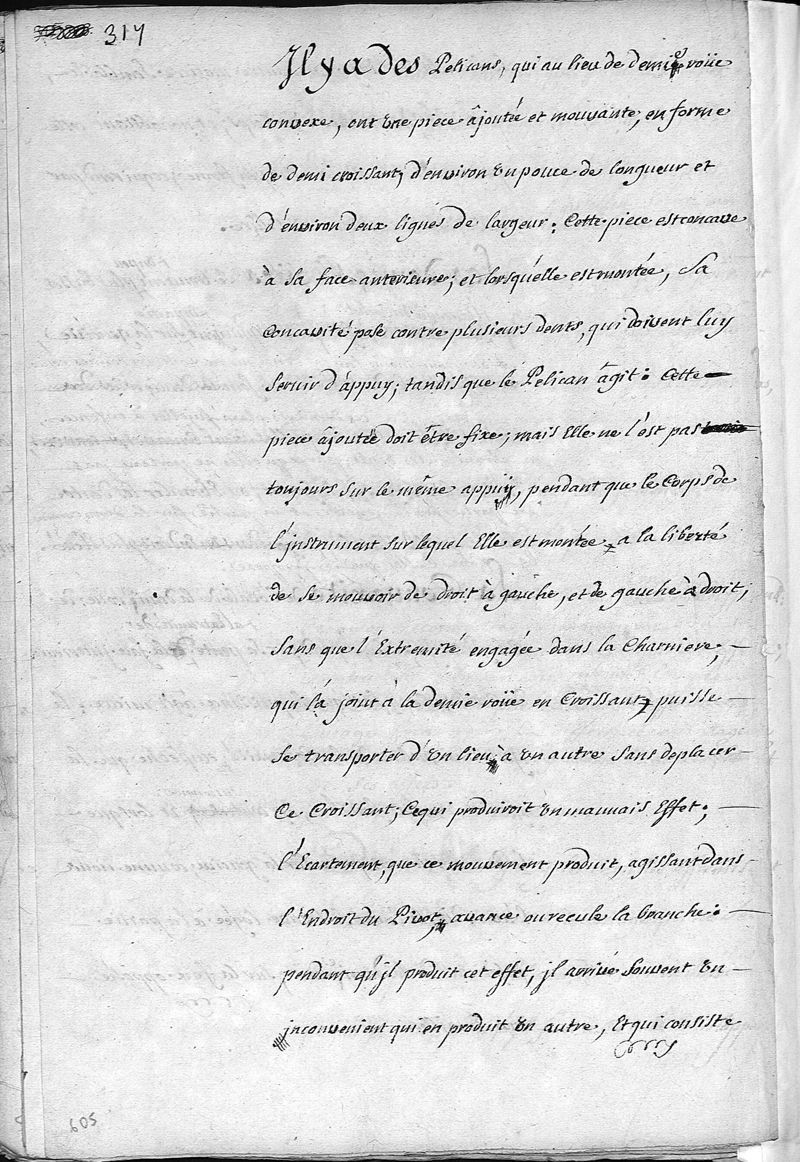 317
Il y a des Pelicans, qui au lieu de demie roüe
convexe, ont une piece âjoutée et mouvante, en forme
de demi croissant, d'environ un pouce de longueur et
d'environ deux lignes de largeur. Cette piece est concave
à sa face anterieure; et lorsqu'elle est montée, sa
concavité pose contre plusieurs dents, qui doivent luy
servir d'âppuy; tandis que le Pelican âgit: Cette
piece âjoutée doit être fixe; mais Elle ne l'est pas
toujours sur le même appuy, pendant que le Corps de
l'jnstrument sur lequel Elle est montée, a la liberté
de se mouvoir de droit à gauche, et de gauche à droit;
sans que l'Extremité engagée dans la Charniere,
qui la joint à la demie roüe en Croissant, puisse
se transporter d'un lieu à un autre sans deplacer
Ce Croissant; Ce qui produiroit un mauvais Effet;
l'Ecartement, que ce mouvement produit, agissant dans
l'Endroit du Pivot, avance ou recule la branche:
pendant qu'jl produit cet effet, jl arrive souvent un
jnconvenient qui en produit un autre, Et qui consiste
605